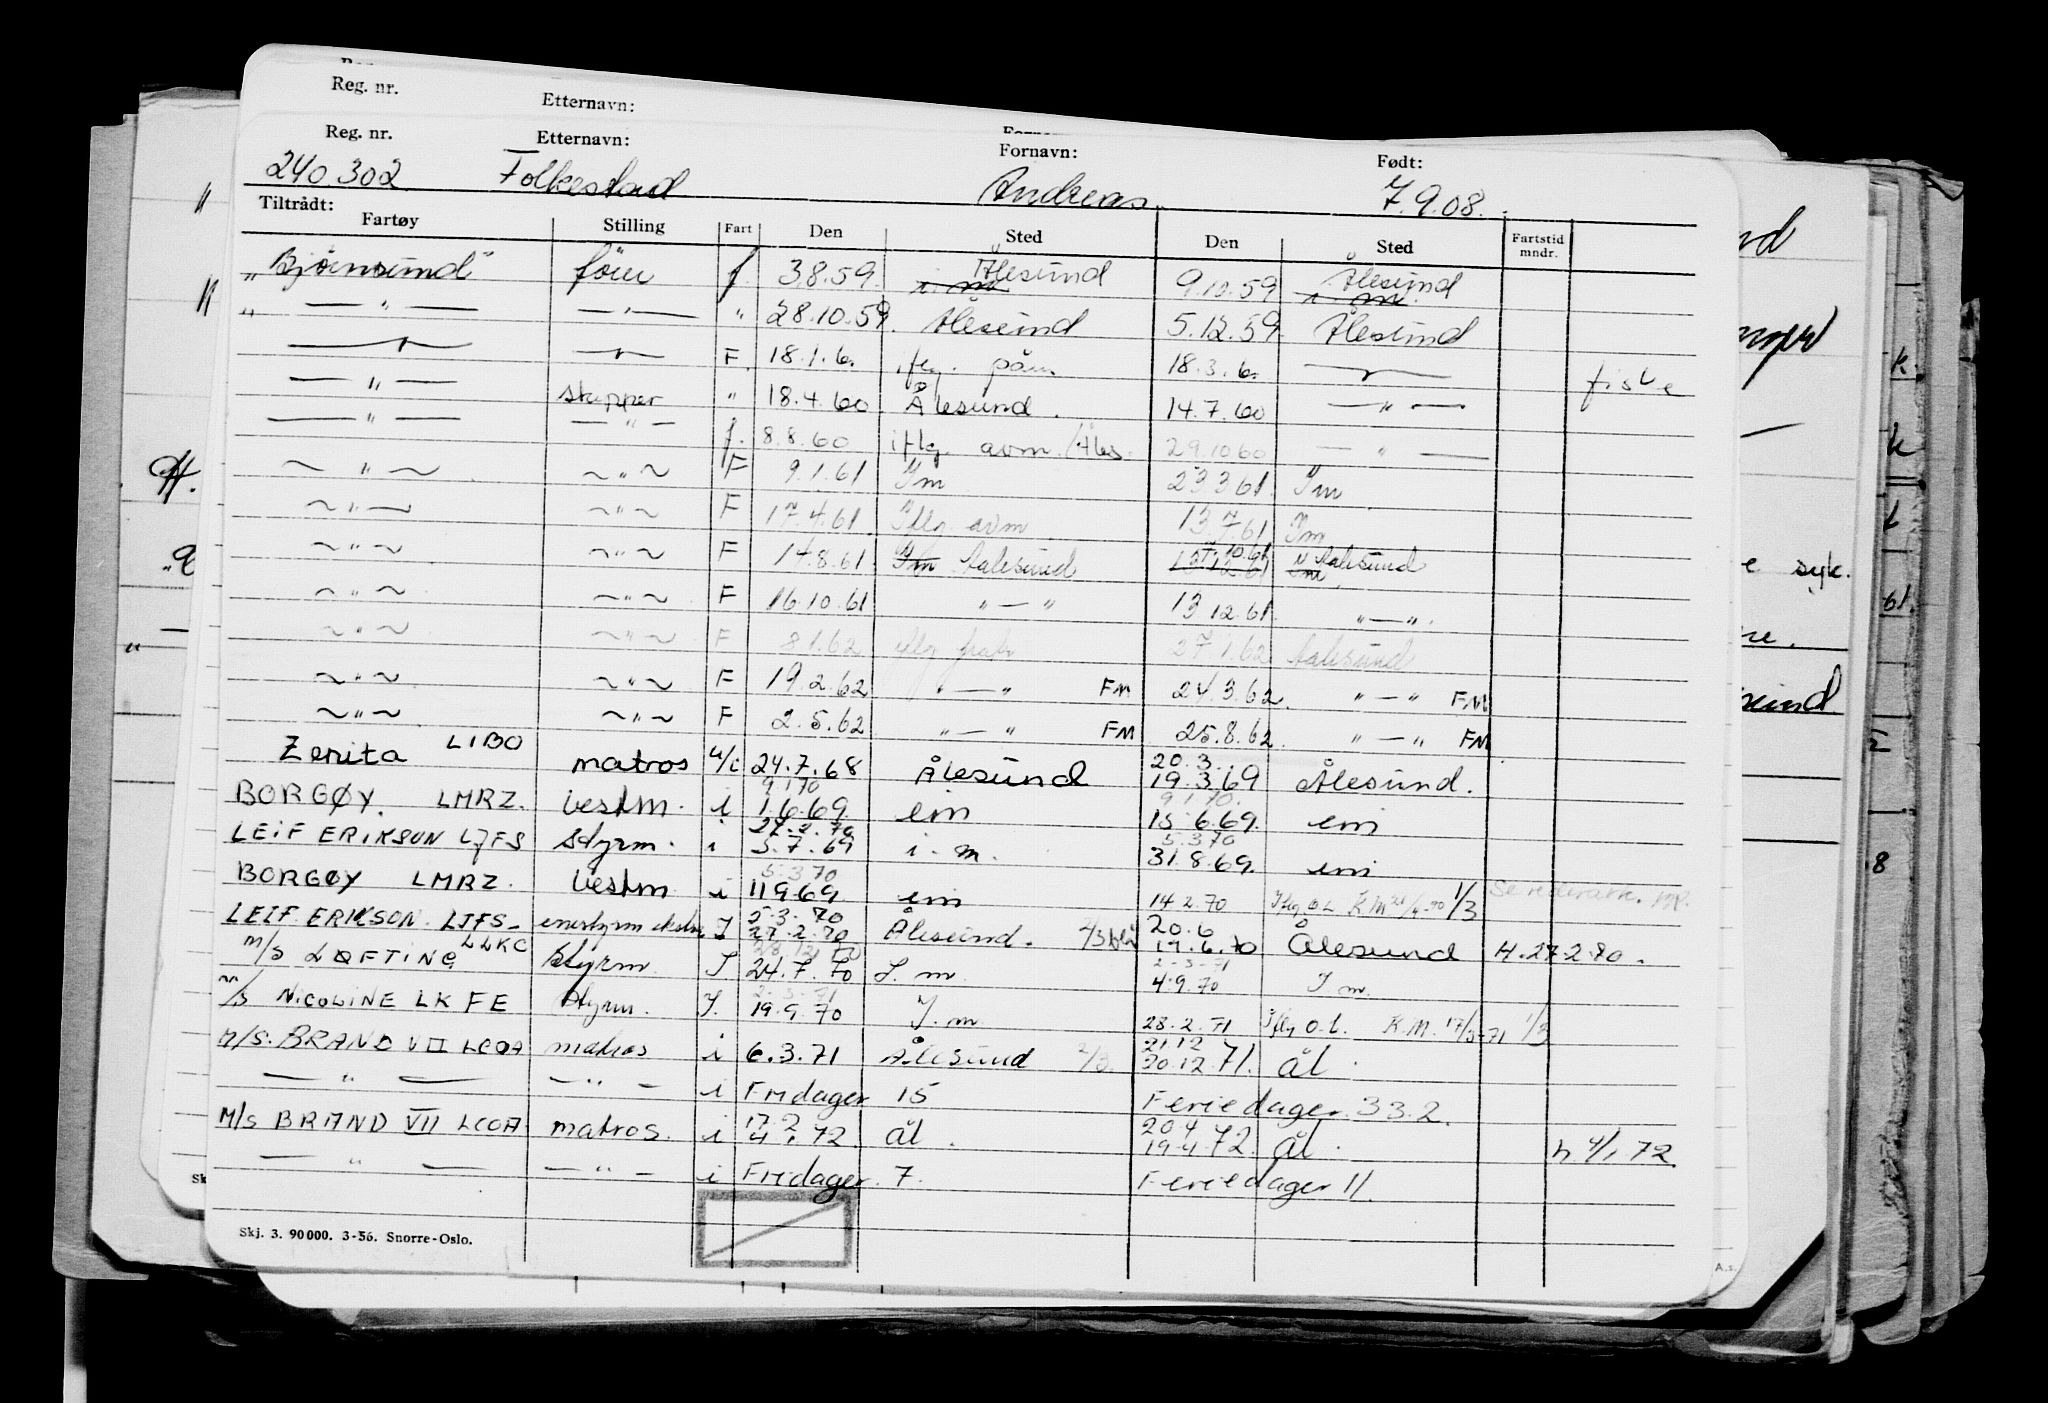 Reg. nr. Etternavn:
Reg. nr. Etternavn: Fornavn: Født:
240.302 Folkestad Andreas. 7.9.08.
Tiltrådt:
Fartøy Stilling Fart Den Sted Den Sted Fartstid mndr.
"Bjørnsund" fører f. 3.8.59. Ålesund 9.10.59 Ålesund
" — " — — " — " 28.10.59. Ålesund 5.12.59. Ålesund
— " — — " — F. 18.1.60. iflg. påm. 18.3.60. — " — fiske
— " — skipper " 18.4.60 Ålesund. 14.7.60 — " —
— " — — " — f. 8.8.60 iflg. avm. /Åles. 29.10.60 — " —
~ " ~ ~ " ~ F 9.1.61 Im 23.3.61. Im
~ " ~ ~ " ~ F 17.4.61. Iflg. avm. 13.7.61 Im
~ " ~ ~ " ~ F 14.8.61. Im Aalesund 13.12.61 Im Aalesund
~ " ~ ~ " ~ F 16.10.61 " — " 13.12.61. " — ".
~ " ~ ~ " ~ F 8.1.62 27.1.62 Aalesund
~ " ~ ~ " ~ F 19.2.62 " — " FM 24.3.62. " — " FM
~ " ~ ~ " ~ F 2.5.62 " — " FM 25.8.62. " — " FM
Zenita LIBO matros u/i 24.7.68 Ålesund 20.3. 19.3.69 Ålesund.
BORGØY. LMRZ. vestm. i 9.1.70 1.6.69. em 9.1.70. 15.6.69. em
LEIF ERIKSON LJFS styrm. i 27.2.70 3.7.69 i.m. 5.3.70 31.8.69. em
BORGØY LMRZ. vestm i 5.3.70 11.9.69. em 14.2.70 1/3
LEIF ERIKSON. LJFS- I 5.3.70 27.2.70 Ålesund. 20.6 19.6.70 Ålesund H.27.2.70.
M/S LOFTING LLKC styrm. I 24.7.70 I.m. 2-3-71 4.9.70 I m.
M/S NICOLINE LKFE styrm. I. 2-3-71 19.9.70 I.m. 28.2.71 Iflg O.L. K.M. 17/3-71 1/3
M/S. BRAND VII LCOA matros i 6.3.71 Ålesund 2/3 21.12 20.12.71. ål.
— " — — " — i Fridager 15 Feriedager. 33.2.
M/S BRAND VII LCOA matros. i 17.2 4.1.72. ål. 20.4 19.4.72. ål. h. 4/1.72.
— " — — " — i Fridager. 7. Feriedager 11.
Skj. 3. 90 000. 3-56. Snorre-Oslo.